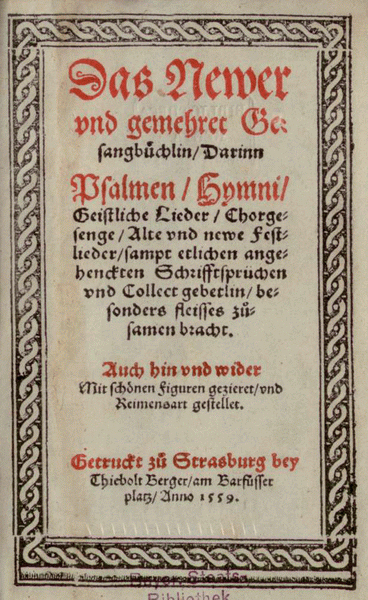 Das Newer
vnd gemehret Ge-
sangbüchlin/Darinn
Psalmen/Hymni/
Geistliche Lieder/Chorge-
senge/Alte vnd newe Fest-
lieder/sampt etlichen ange-
henckten Schrifftsprüchen
vnd Collect gebetlin/be-
sonders fleisses zů-
samen bracht.
Auch hin vnd wider
Mit schönen Figuren gezieret/vnd
Reimensart gestellet.
Getruckt zů Strasburg bey
Thiebolt Berger/am Barfüsser
platz/Anno 1559.
Bibliothek